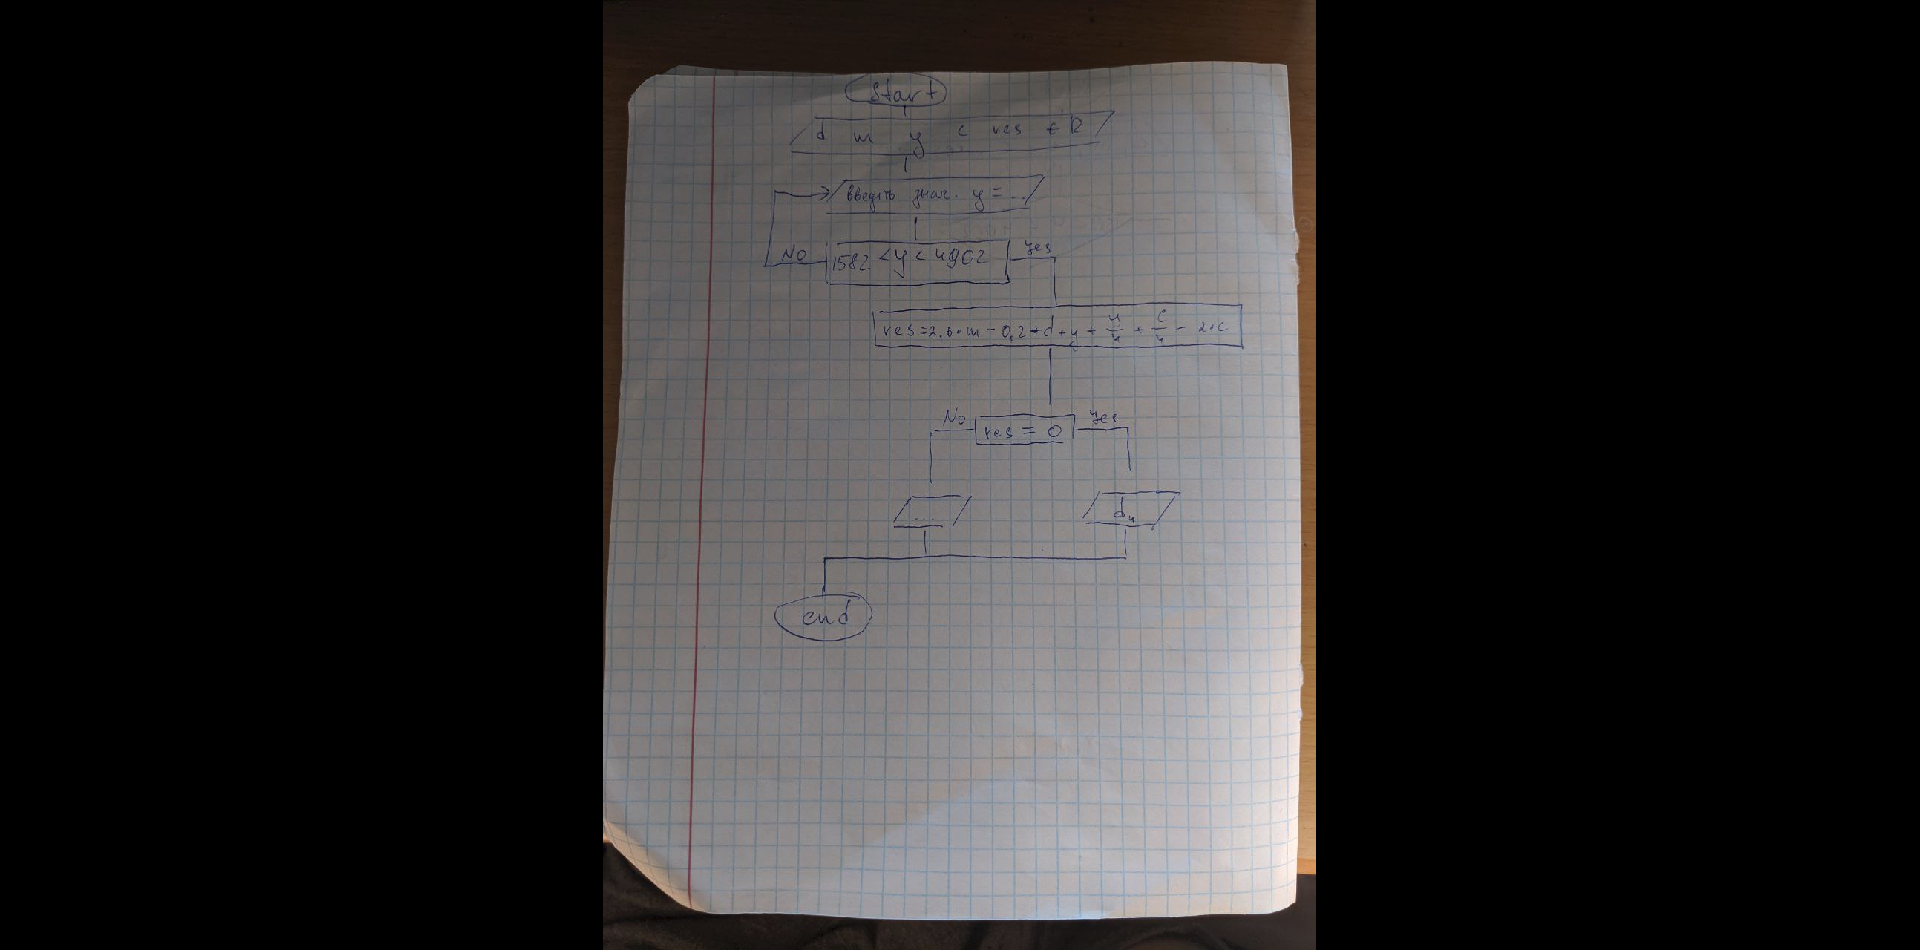 start
d m y c res ∈ R
введить знач. y = ...
No 1582 < y < 4902 yes
res = 2,6 * m - 0,2 + d + y + y/4 + c/4 - 2 * c
No res = 0 yes
... dn
end